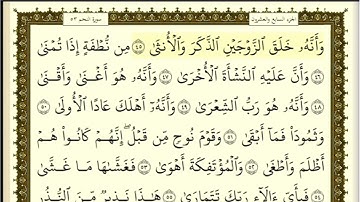 الجزء السابع والعشرون سورة النجم ٥٣
وَأَنَّهُۥ خَلَقَ ٱلزَّوْجَيْنِ ٱلذَّكَرَ وَٱلْأُنثَىٰ ٤٥ مِن نُّطْفَةٍ إِذَا تُمْنَىٰ
٤٦ وَأَنَّ عَلَيْهِ ٱلنَّشْأَةَ ٱلْأُخْرَىٰ ٤٧ وَأَنَّهُۥ هُوَ أَغْنَىٰ وَأَقْنَىٰ
٤٨ وَأَنَّهُۥ هُوَ رَبُّ ٱلشِّعْرَىٰ ٤٩ وَأَنَّهُۥٓ أَهْلَكَ عَادًا ٱلْأُولَىٰ ٥٠
وَثَمُودَا۟ فَمَآ أَبْقَىٰ ٥١ وَقَوْمَ نُوحٍ مِّن قَبْلُ إِنَّهُمْ كَانُوا۟ هُمْ
أَظْلَمَ وَأَطْغَىٰ ٥٢ وَٱلْمُؤْتَفِكَةَ أَهْوَىٰ ٥٣ فَغَشَّىٰهَا مَا غَشَّىٰ
٥٤ فَبِأَىِّ ءَالَآءِ رَبِّكَ تَتَمَارَىٰ ٥٥ هَٰذَا نَذِيرٌ مِّنَ ٱلنُّذُرِ